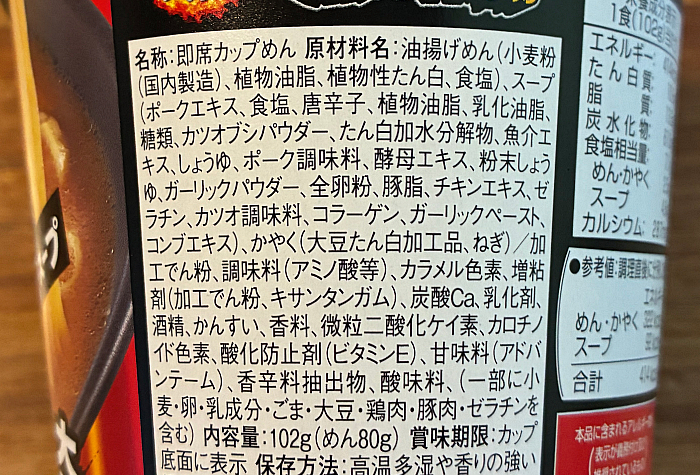 名称:即席カップめん 原材料名:油揚げめん(小麦粉
(国内製造)、植物油脂、植物性たん白、食塩)、スープ
(ポークエキス、食塩、唐辛子、植物油脂、乳化油脂、
糖類、カツオブシパウダー、たん白加水分解物、魚介エ
キス、しょうゆ、ポーク調味料、酵母エキス、粉末しょう
ゆ、ガーリックパウダー、全卵粉、豚脂、チキンエキス、ゼ
ラチン、カツオ調味料、コラーゲン、ガーリックペースト、
コンブエキス)、かやく(大豆たん白加工品、ねぎ)/加
工でん粉、調味料(アミノ酸等)、カラメル色素、増粘
剤(加工でん粉、キサンタンガム)、炭酸Ca、乳化剤、
酒精、かんすい、香料、微粒二酸化ケイ素、カロチノ
イド色素、酸化防止剤(ビタミンE)、甘味料(アドバ
ンテーム)、香辛料抽出物、酸味料、(一部に小
麦・卵・乳成分・ごま・大豆・鶏肉・豚肉・ゼラチンを
含む) 内容量:102g(めん80g) 賞味期限:カップ
底面に表示 保存方法:高温多湿や香りの強い
1食(102g)
エネルギー:
たん白質:
脂質:
炭水化物:
食塩相当量:
めん・かやく
スープ
カルシウム:
●参考値:調理直後に
めん・かやく
スープ
合計
本品に含まれるアレルギー